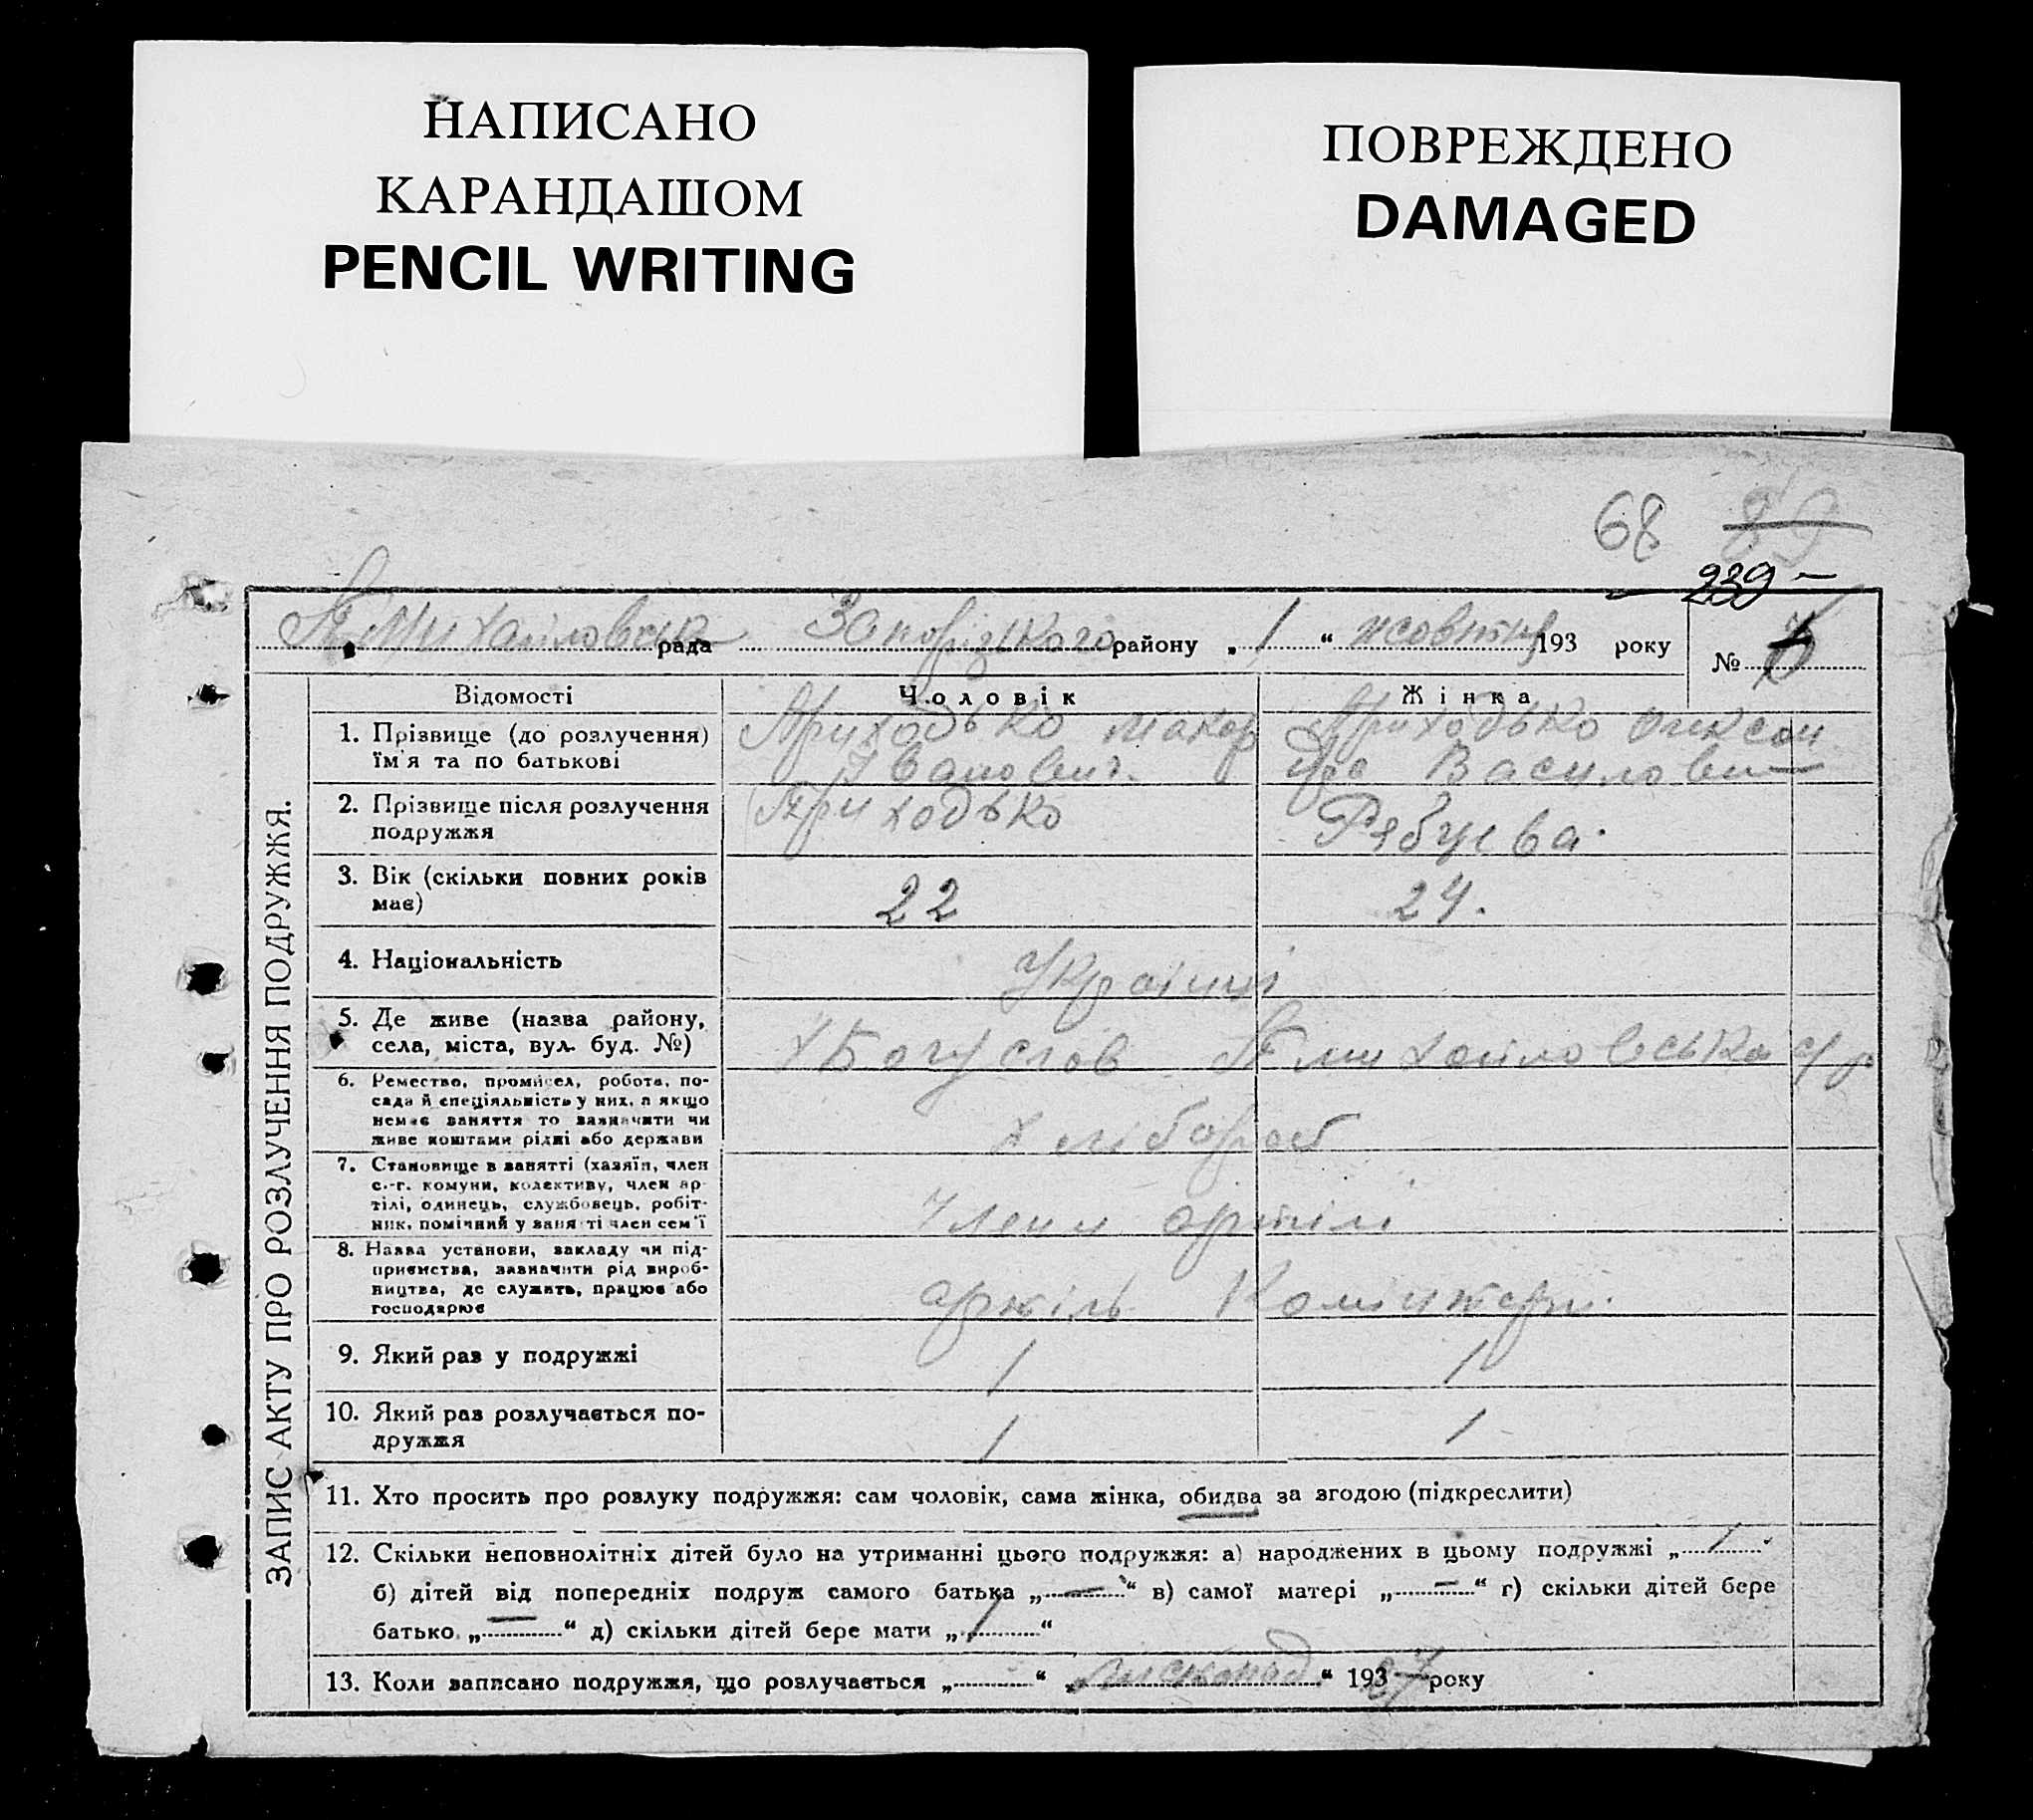 НАПИСАНО
КАРАНДАШОМ
PENCIL WRITING
ПОВРЕЖДЕНО
DAMAGED
68
239 –
рада Запорізького району „ 1 “ жовтня 193 року
№
ЗАПИС АКТУ ПРО РОЗЛУЧЕННЯ ПОДРУЖЖЯ.
Відомості Чоловік Жінка
1. Прізвище (до розлучення) Приходько Макар Приходько Олексан
їм'я та по батькові Іванович. Василовн
2. Прізвище після розлучення Приходько Рябцева.
подружжя
3. Вік (скільки повних років 22 24.
має)
4. Національність Українці
5. Де живе (назва району, Богуслов Михайловська с/р
села, міста, вул. буд. №)
6. Ремество, промисел, робота, по-
сада й спеціяльність у них, а якщо
немає заняття то зазначити чи хлібороб
живе коштами рідні або держави
7. Становище в занятті (хазяїн, член
с.-г. комуни, колективу, член ар-
тілі, одинець, службовець, робіт- Члени артілі
ник, помічний у занятті член сем'ї
8. Назва установи, закладу чи під-
приємства, зазначити рід вироб-
ництва, де служить, працює або артіль Комінтерн.
господарює
9. Який раз у подружжі 1 1
10. Який раз розлучається по- 1 1
дружжя
11. Хто просить про розлуку подружжя: сам чоловік, сама жінка, обидва за згодою (підкреслити)
12. Скільки неповнолітніх дітей було на утриманні цього подружжя: а) народжених в цьому подружжі „ 1 “
б) дітей від попередніх подруж самого батька „ — “ в) самої матері „ — “ г) скільки дітей бере
батько „ — “ д) скільки дітей бере мати „ 1 “
13. Коли записано подружжя, що розлучається „ “ „ листопад “ 193 року